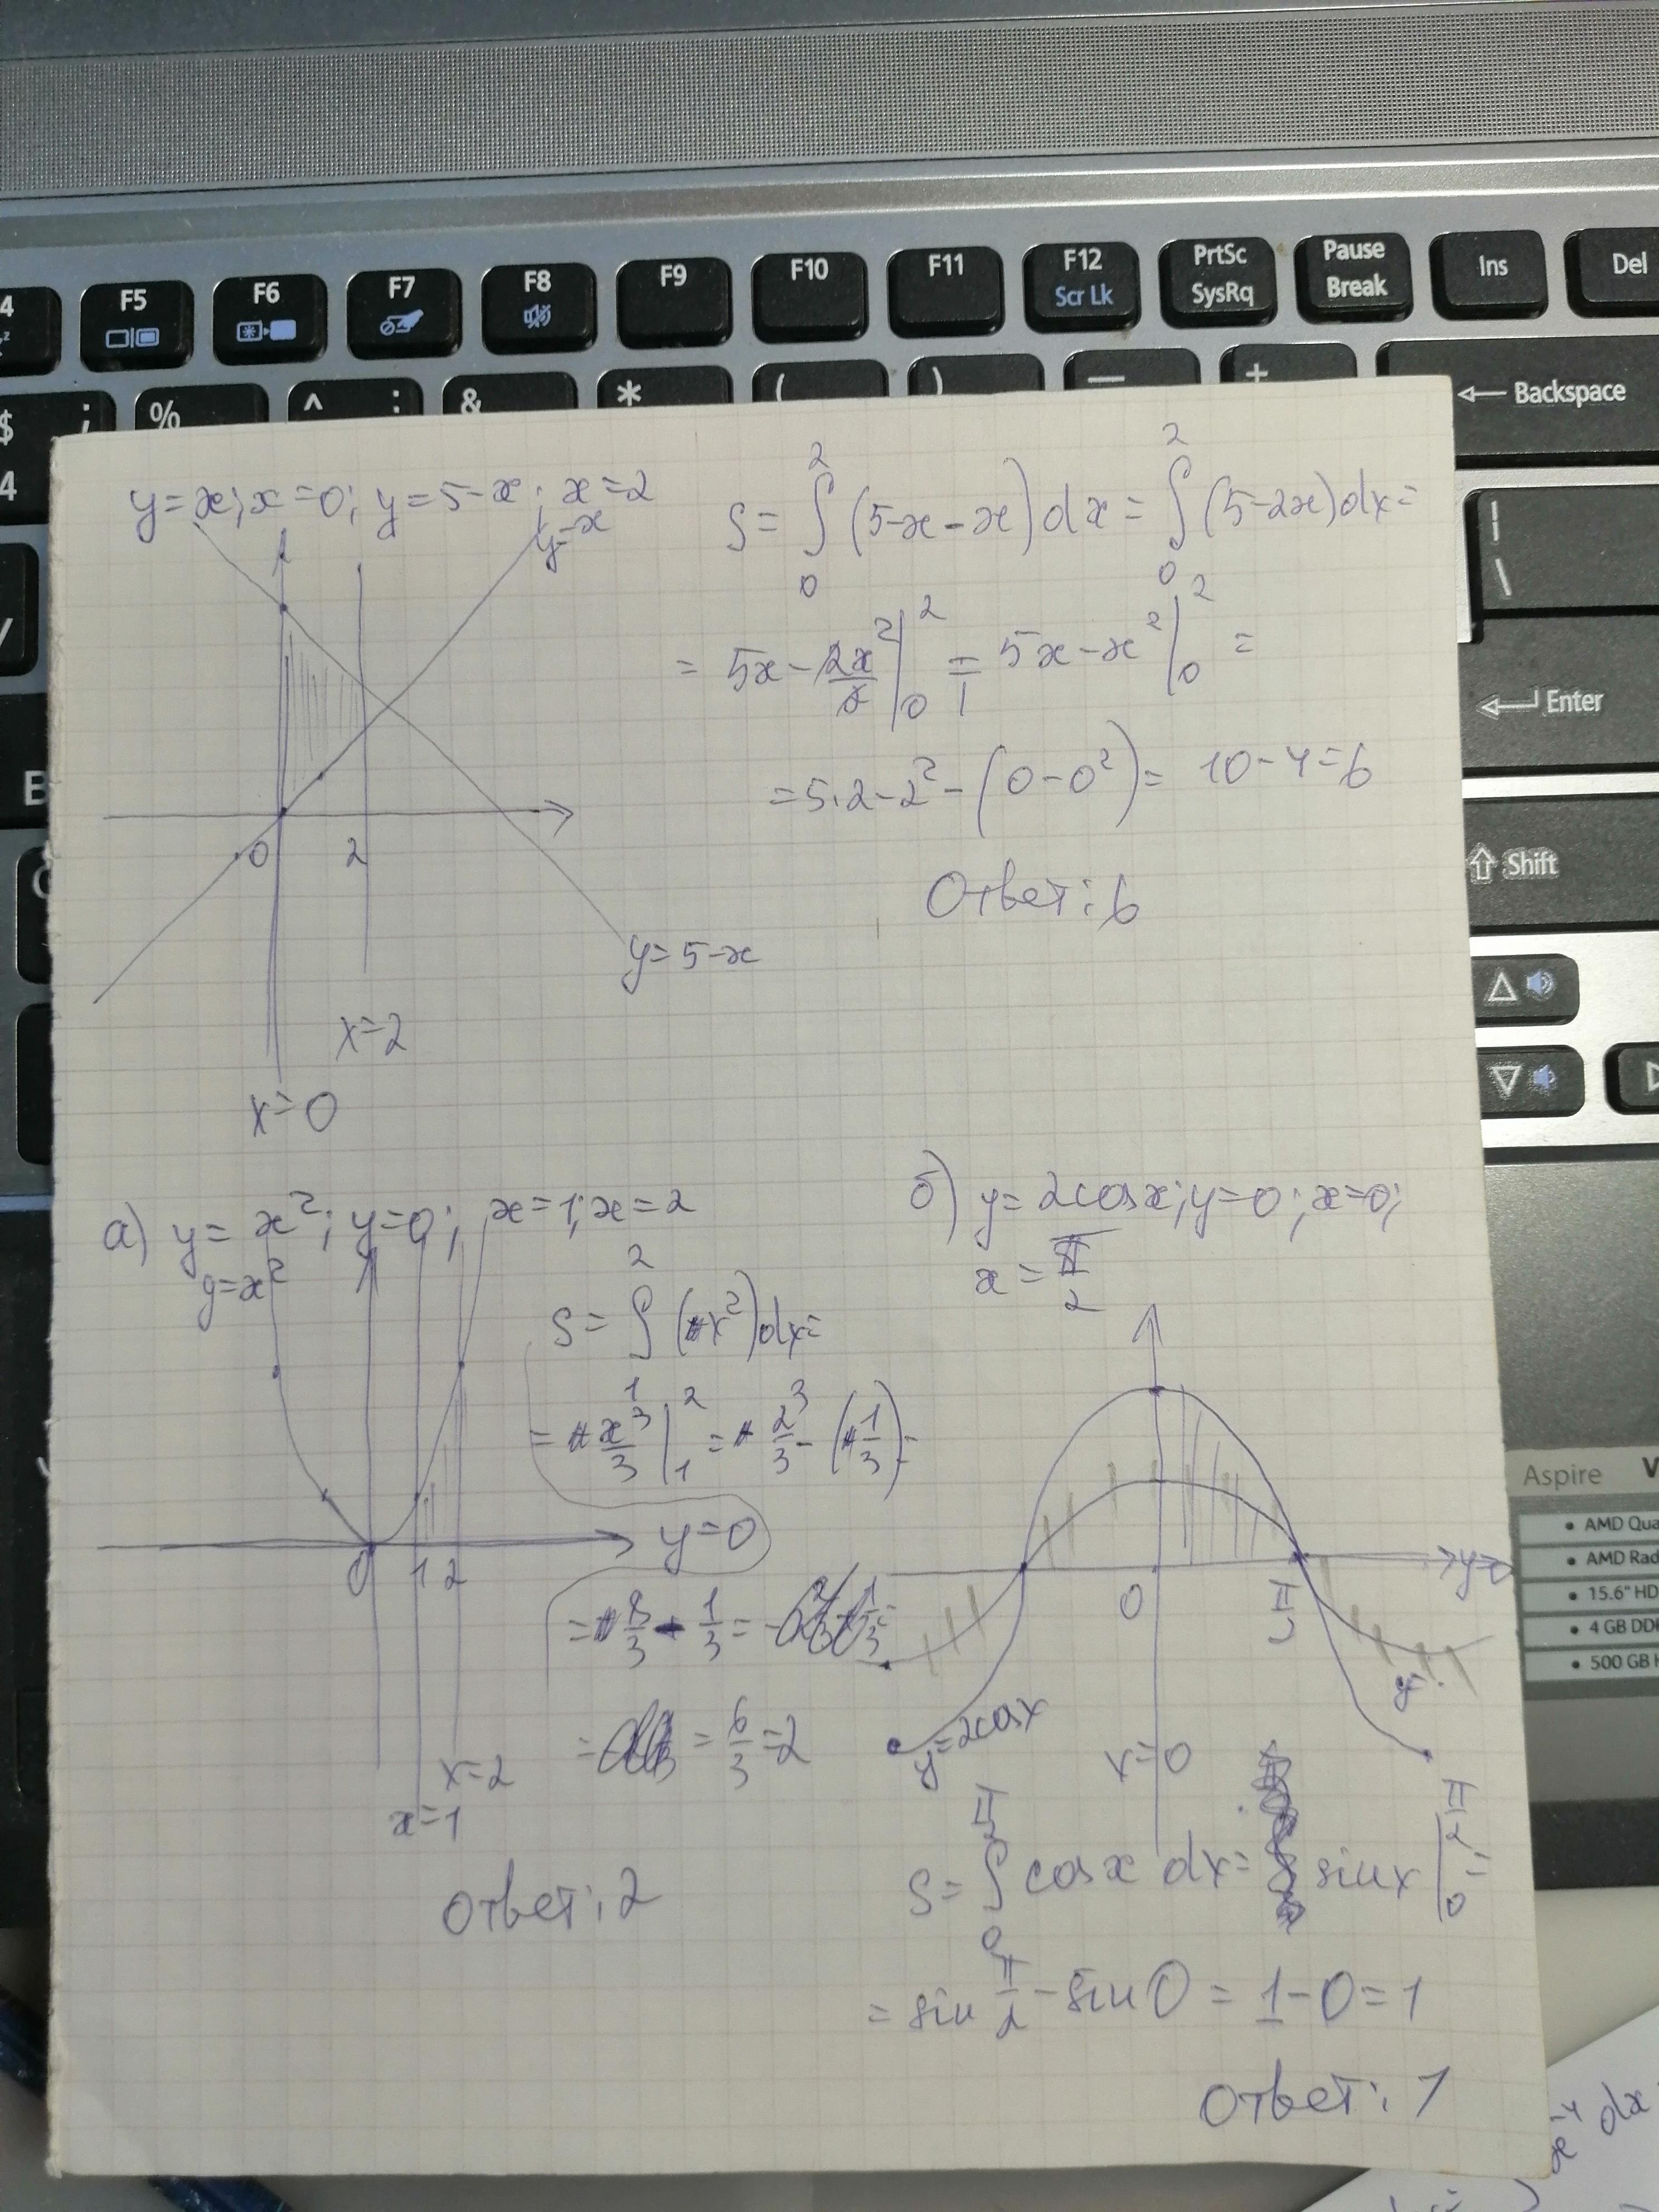 F5
F6
F7
F8
F9
F10
F11
F12
Scr Lk
PrtSc
SysRq
Pause
Break
Ins
Del
4
$ ;
4
%
^ :
&
*
(
)
—
+
← Backspace
|
\
Enter
Shift
Aspire
• AMD Qua
• AMD Rad
• 15.6" HD
• 4 GB DD
• 500 GB H
y=x; x=0; y=5-x; x=2
y=x
0
2
y=5-x
x=2
x=0
S=∫₀²(5-x-x)dx=∫₀²(5-2x)dx=
=5x-2x²/2|₀²=5x-x²|₀²=
=5·2-2²-(0-0²)=10-4=6
Ответ: 6
а) y=x²; y=0; x=1; x=2
y=x²
0
1 2
y=0
x=2
x=1
S=∫₁²(x²)dx=
=x³/3|₁²=2³/3-(1/3)=
=8/3-1/3=
=6/3=2
Ответ: 2
б) y=2cosx; y=0; x=0;
x=π/2
0
y=2cosx
x=0
S=∫cosx dx=sinx|₀^(π/2)=
=sin π/2-sin0=1-0=1
Ответ: 1
x⁻⁴dx